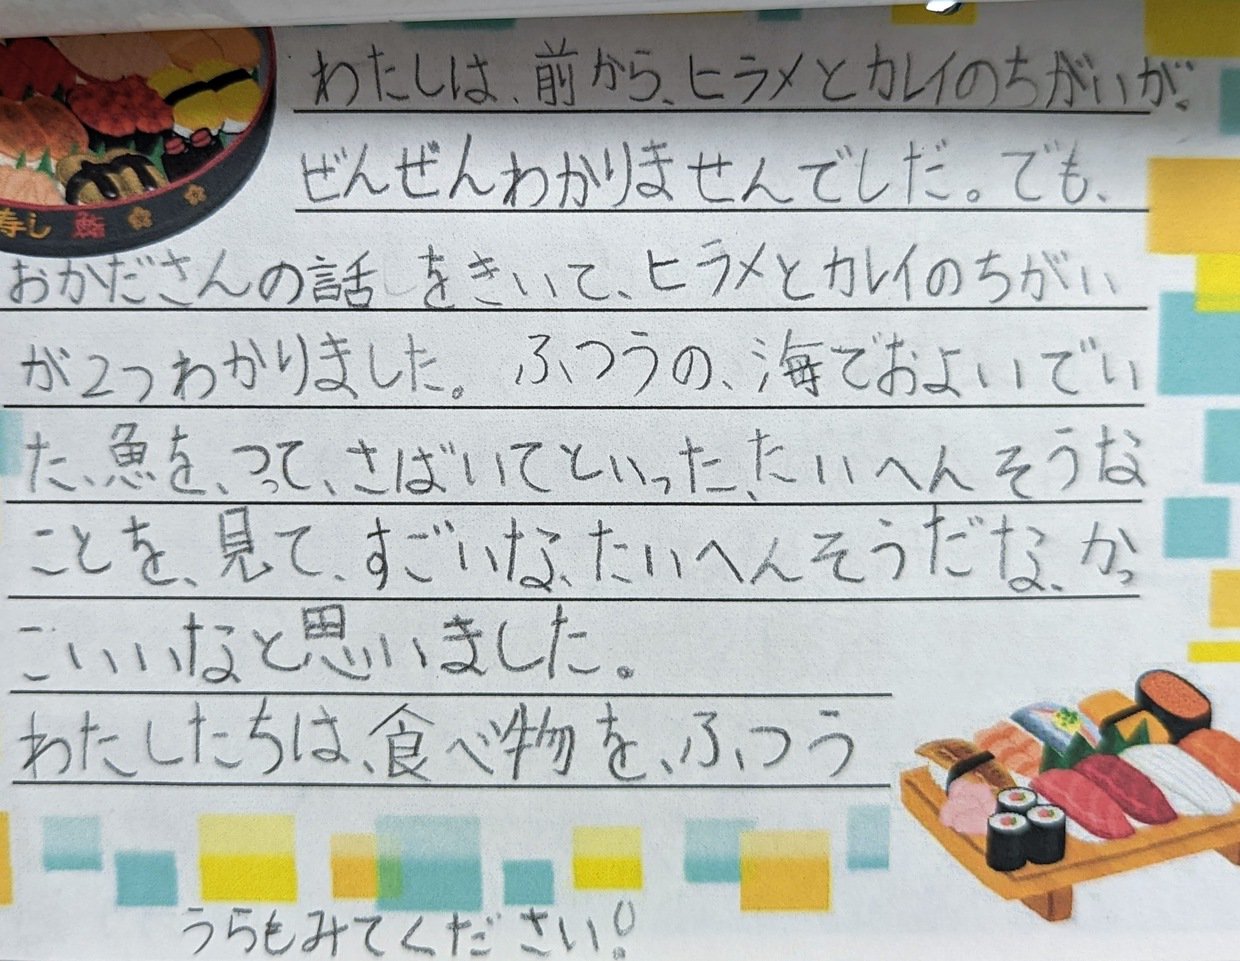 寿し 鮨
わたしは、前から、ヒラメとカレイのちがいが、
ぜんぜんわかりませんでしだ。でも、
おかださんの話をきいて、ヒラメとカレイのちがい
が2つわかりました。ふつうの、海でおよいでい
た、魚を、つって、さばいてといった、たいへんそうな
ことを、見て、すごいな、たいへんそうだな、かっ
こいいなと思いました。
わたしたちは、食べ物を、ふつう
うらもみてください!